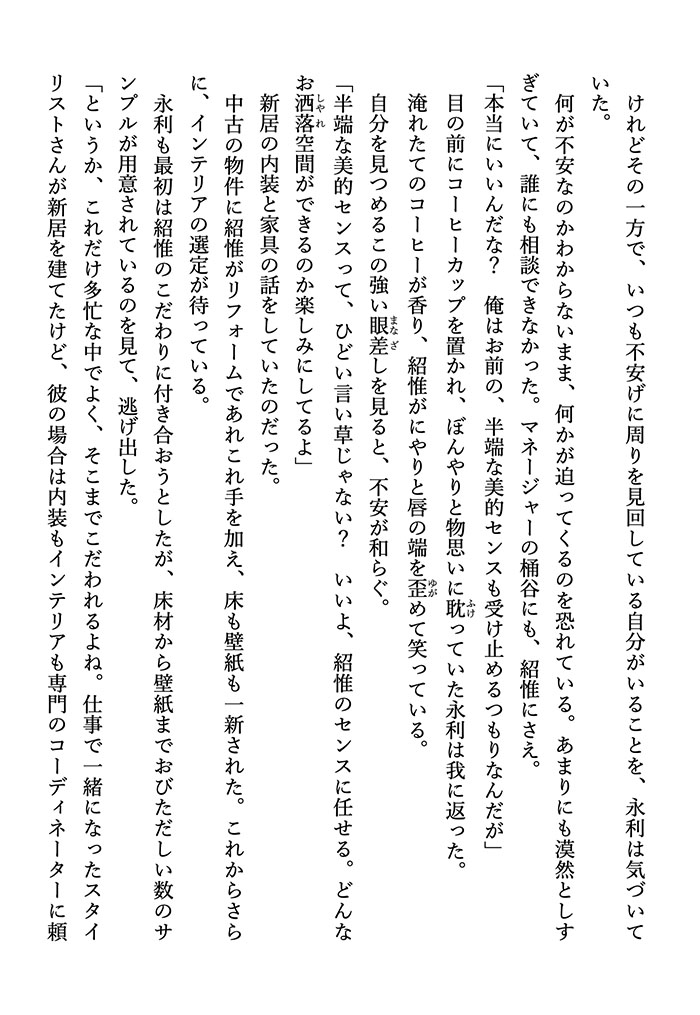 けれどその一方で、いつも不安げに周りを見回している自分がいることを、永利は気づいて
いた。
何が不安なのかわからないまま、何かが迫ってくるのを恐れている。あまりにも漠然としす
ぎていて、誰にも相談できなかった。マネージャーの桶谷にも、紹惟にさえ。
「本当にいいんだな？　俺はお前の、半端な美的センスも受け止めるつもりなんだが」
目の前にコーヒーカップを置かれ、ぼんやりと物思いに耽っていた永利は我に返った。
淹れたてのコーヒーが香り、紹惟がにやりと唇の端を歪めて笑っている。
自分を見つめるこの強い眼差しを見ると、不安が和らぐ。
「半端な美的センスって、ひどい言い草じゃない？　いいよ、紹惟のセンスに任せる。どんな
お洒落空間ができるのか楽しみにしてるよ」
新居の内装と家具の話をしていたのだった。
中古の物件に紹惟がリフォームであれこれ手を加え、床も壁紙も一新された。これからさら
に、インテリアの選定が待っている。
永利も最初は紹惟のこだわりに付き合おうとしたが、床材から壁紙までおびただしい数のサ
ンプルが用意されているのを見て、逃げ出した。
「というか、これだけ多忙な中でよく、そこまでこだわれるよね。仕事で一緒になったスタイ
リストさんが新居を建てたけど、彼の場合は内装もインテリアも専門のコーディネーターに頼